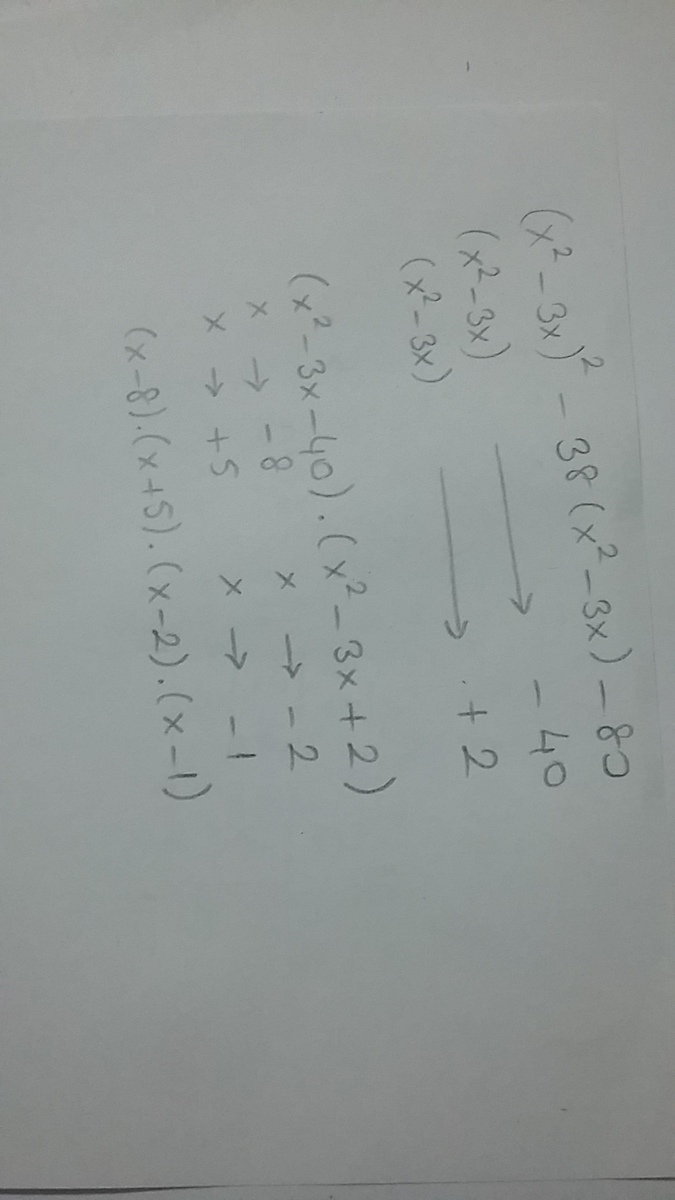 (x² - 3x)² - 38 (x² - 3x) - 80
(x² - 3x) → - 40
(x² - 3x) → + 2
(x² - 3x - 40) . (x² - 3x + 2)
x → - 8 x → - 2
x → + 5 x → - 1
(x - 8) . (x + 5) . (x - 2) . (x - 1)